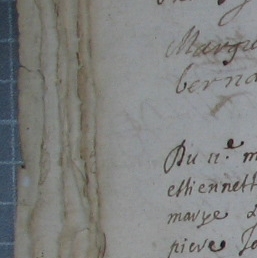 Margu
berna
Du 11.e m
estiennett
marye d
piere Ja